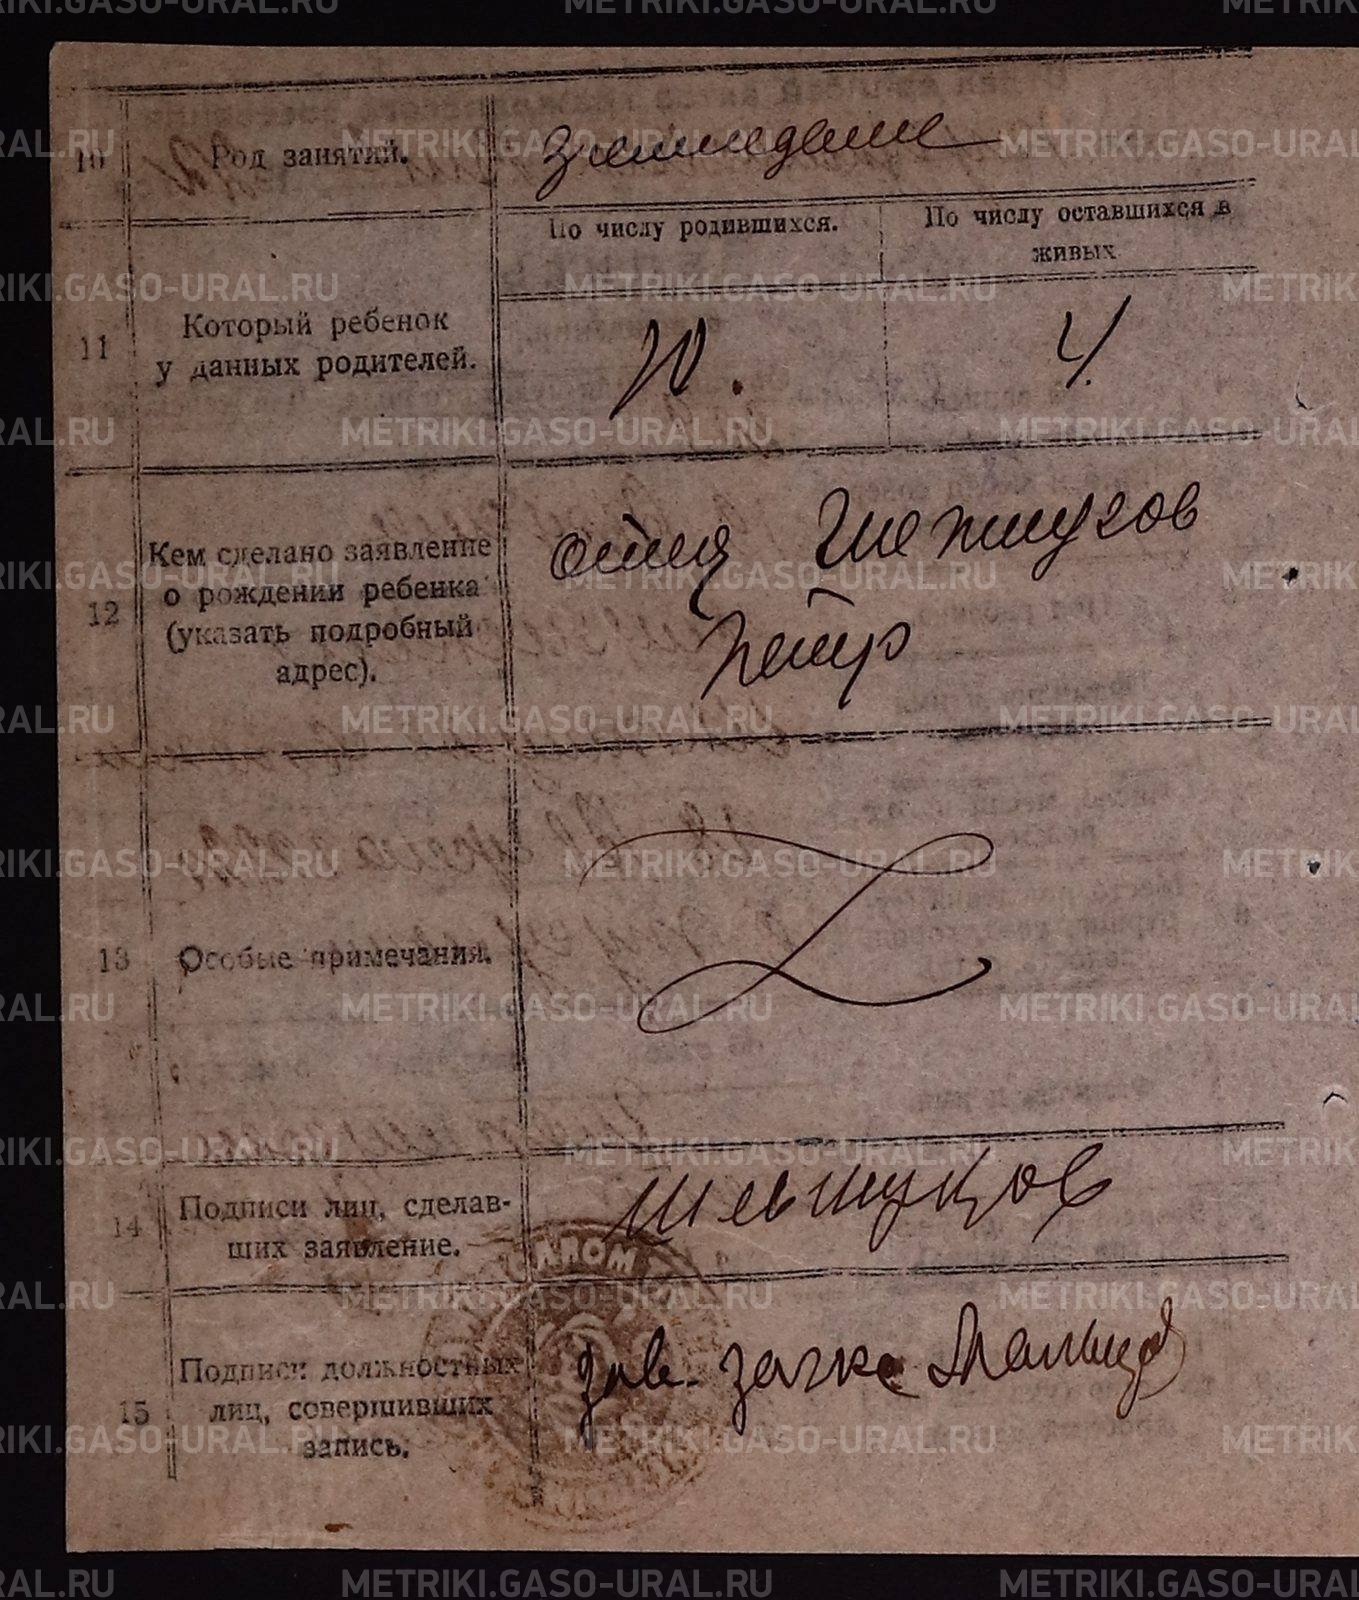 METRIKI.GASO-URAL.RU
10 Род занятий. Земледелие
По числу родившихся. По числу оставшихся в живых
11 Который ребенок
у данных родителей. 10. 4.
12 Кем сделано заявление
о рождении ребенка
(указать подробный
адрес).
отец
Петр
13 Особые примечания.
14 Подписи лиц, сделав-
ших заявление.
15 Подписи должностных
лиц, совершивших
запись.
Зав. загса Мальцев